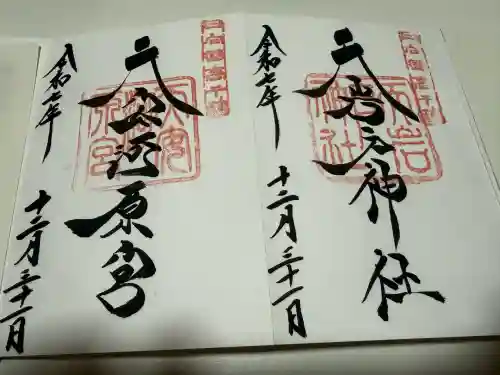 天岩戸神社
令和七年
十二月三十一日
天安河原宮
令和七年
十二月三十一日